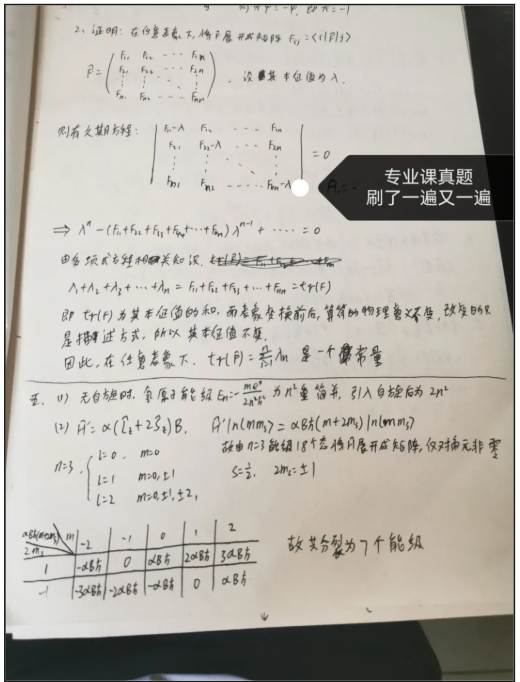 即 x = -1
2、证明: 在任意表象下, 将F̂展开成矩阵 Fij = <i|F̂|j>
F̂ = ( F11 F12 ··· F1n
F21 F22 ··· F2n
Fn1 Fn2 ··· Fnn ) . 设其本征值为λ.
则有久期方程:
| F11-λ F12 ··· F1n
F21 F22-λ ··· F2n
Fn1 Fn2 ··· Fnn-λ | = 0
专业课真题
刷了一遍又一遍
⇒ λ^n - (F11+F22+F33+F44+···+Fnn) λ^(n-1) + ······ = 0
由多项式方程相关知识,
λ1+λ2+λ3+···+λn = F11+F22+F33+···+Fnn = tr(F)
即 tr(F) 为其本征值的和, 而表象变换前后, 算符的物理意义不变, 改变的只
是描述方式, 所以其本征值不变.
因此, 在任意表象下, tr(F̂) = Σλn 是一个常量
五、(1) 无自旋时, 氢原子能级 En = -me⁴/2n²ħ² 为n²重简并, 引入自旋后为2n²
(2) Ĥ' = α(L̂z+2Ŝz)B, Ĥ'|nlmms> = αBħ(m+2ms)|nlmms>
故由n=3能级18个态将Ĥ展开成矩阵, 仅对角元非零
n=3, { l=0, m=0
l=1 m=0,±1 S=½, 2ms=±1
l=2 m=0,±1,±2,
αBħ(m+2ms) m -2 -1 0 1 2
2ms
1 -αBħ 0 αBħ 2αBħ 3αBħ
-1 -3αBħ -2αBħ -αBħ 0 αBħ
故共分裂为7个能级